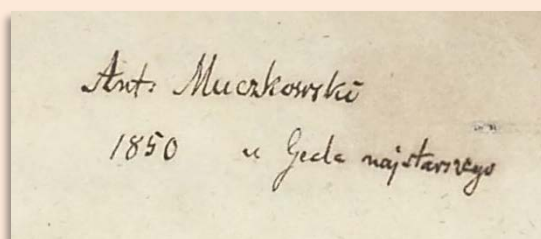 Ant: Muczkowski
1850 u Geda najstarszego